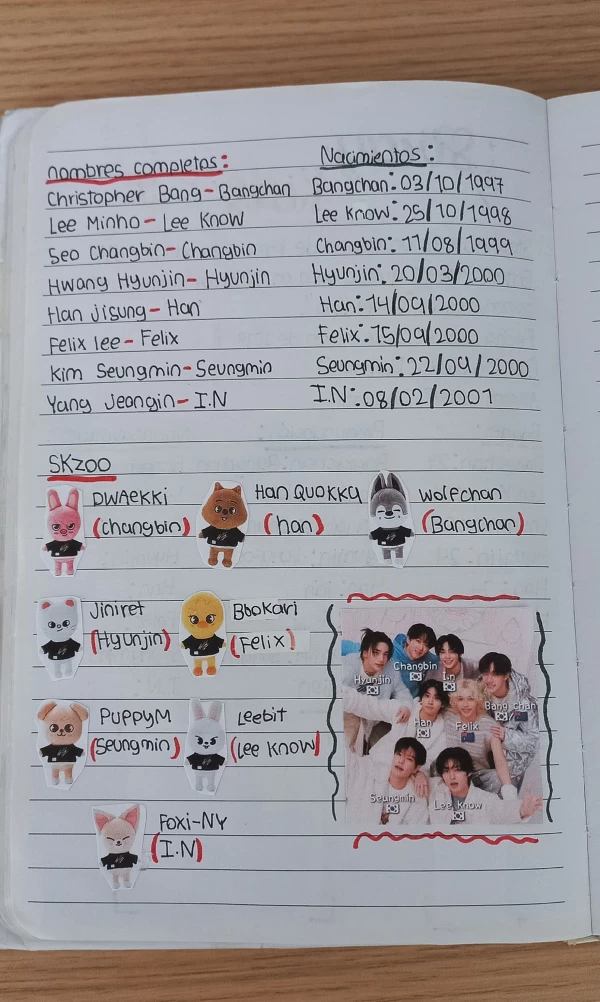 nombres completos: Nacimientos:
Christopher Bang - Bangchan Bangchan: 03/10/1997
Lee Minho - Lee Know Lee Know: 25/10/1998
Seo Changbin - Changbin Changbin: 11/08/1999
Hwang Hyunjin - Hyunjin Hyunjin: 20/03/2000
Han jisung - Han Han: 14/09/2000
Felix lee - Felix Felix: 15/09/2000
Kim Seungmin - Seungmin Seungmin: 22/09/2000
Yang Jeongin - I.N I.N: 08/02/2001
SKZOO
DWAEKKI Han QUOKKA Wolfchan
(changbin) (han) (Bangchan)
Jiniret Bbokari
(Hyunjin) (Felix)
PuppyM Leebit
(Seungmin) (Lee Know)
Foxi-NY
(I.N)
Changbin
Hyunjin I.n
Bang chan
Han Felix
Seungmin Lee Know